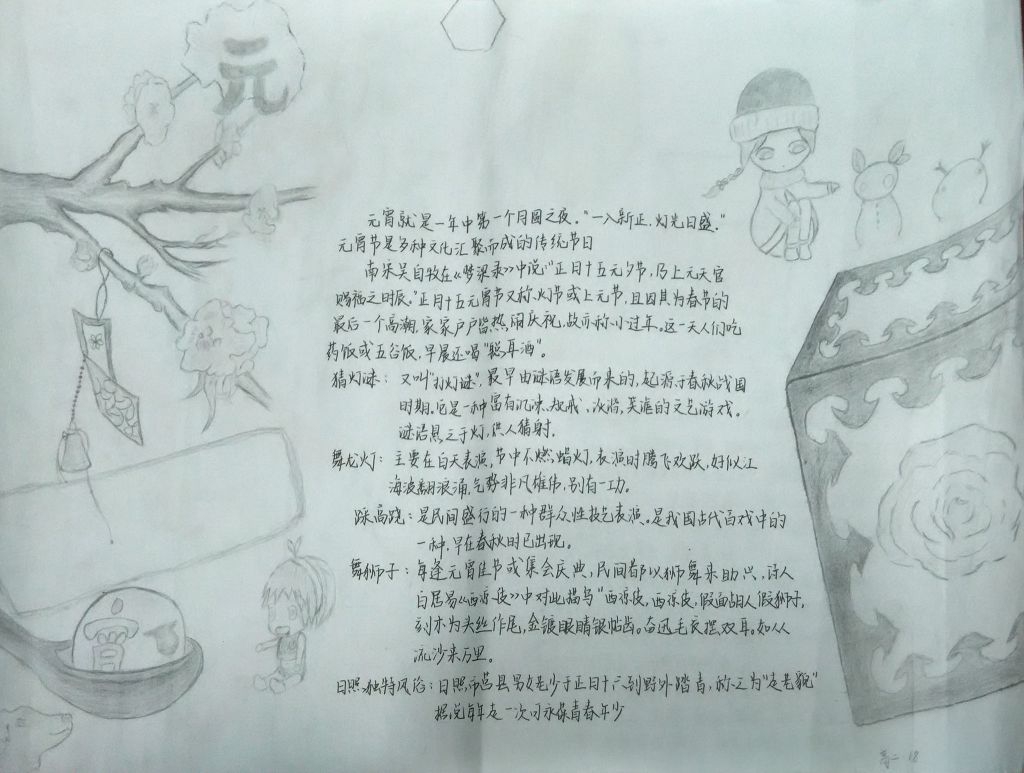 元
元宵就是一年中第一个月圆之夜。“一入新正,灯光日盛。”
元宵节是多种文化汇聚而成的传统节日
南宋吴自牧在《梦梁录》中说:“正月十五元夕节,乃上元天官
赐福之时辰。”正月十五元宵节又称灯节或上元节,且因其为春节的
最后一个高潮,家家户户皆热闹庆祝,故亦称小过年。这一天人们吃
药饭或五谷饭,早晨还喝“聪耳酒”。
猜灯谜:又叫“打灯谜”,最早由谜语发展而来的,起源于春秋战国
时期。它是一种富有讥谏、规戒、诙谐、笑谑的文艺游戏。
谜语悬之于灯,供人猜射。
舞龙灯:主要在白天表演,节中不燃蜡灯,表演时腾飞欢跃,好似江
海波翻浪涌,气势非凡雄伟,别有一功。
踩高跷:是民间盛行的一种群众性技艺表演。是我国古代百戏中的
一种,早在春秋时已出现。
舞狮子:每逢元宵佳节或集会庆典,民间都以狮舞来助兴,诗人
白居易《西凉伎》中对此描写“西凉伎,西凉伎,假面胡人假狮子,
刻木为头丝作尾,金镀眼睛银帖齿。奋迅毛衣摆双耳。如从
流沙来万里。
日照独特风俗:日照市莒县男女老少于正月十六到野外踏青,称之为“走老貌”
据说每年走一次可永保青春年少
宵
高二 18